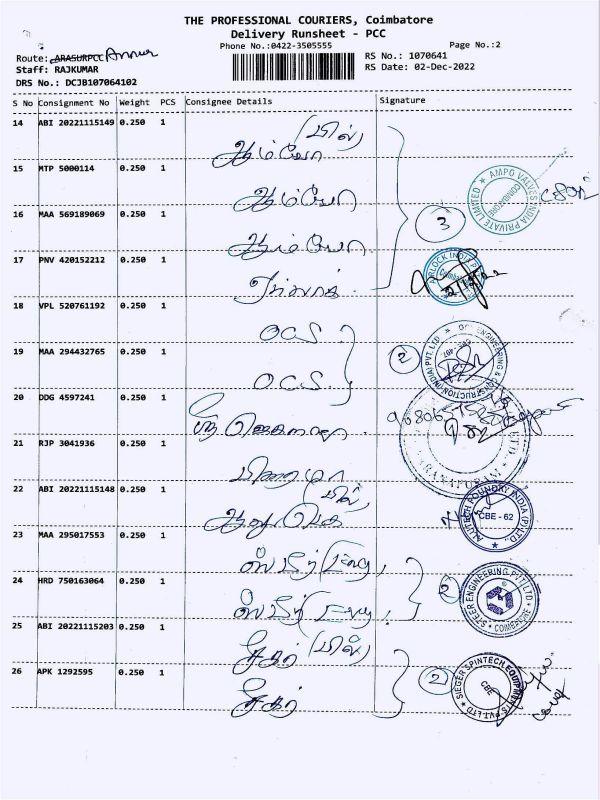 THE PROFESSIONAL COURIERS, Coimbatore
Delivery Runsheet - PCC
Phone No.:0422-3505555
Page No.:2
Route: ARASURPCC Annur
RS No.: 1070641
Staff: RAJKUMAR
RS Date: 02-Dec-2022
DRS No.: DCJB107064102
S No Consignment No Weight PCS Consignee Details Signature
14 ABI 20221115149 0.250 1 ஆம்வோ (பில்)
15 MTP 5000114 0.250 1 ஆம்வோ
AMPO VALVES INDIA PRIVATE LIMITED
16 MAA 569189069 0.250 1 ஆம்வோ
3
17 PNV 420152212 0.250 1
18 VPL 520761192 0.250 1 OCS
19 MAA 294432765 0.250 1 OCS
2
20 DDG 4597241 0.250 1
21 RJP 3041936 0.250 1
22 ABI 20221115148 0.250 1 (பில்)
CBE - 62
23 MAA 295017553 0.250 1 ஸ்டீர் Eng
24 HRD 750163064 0.250 1 ஸ்டீர் Eng
2
STEER ENGINEERING PVT LTD COIMBATORE
25 ABI 20221115203 0.250 1 சீகர் (பில்)
26 APK 1292595 0.250 1 சீகர்
2
SIEGER SPINTECH EQUIPMENTS PVT. LTD CBE